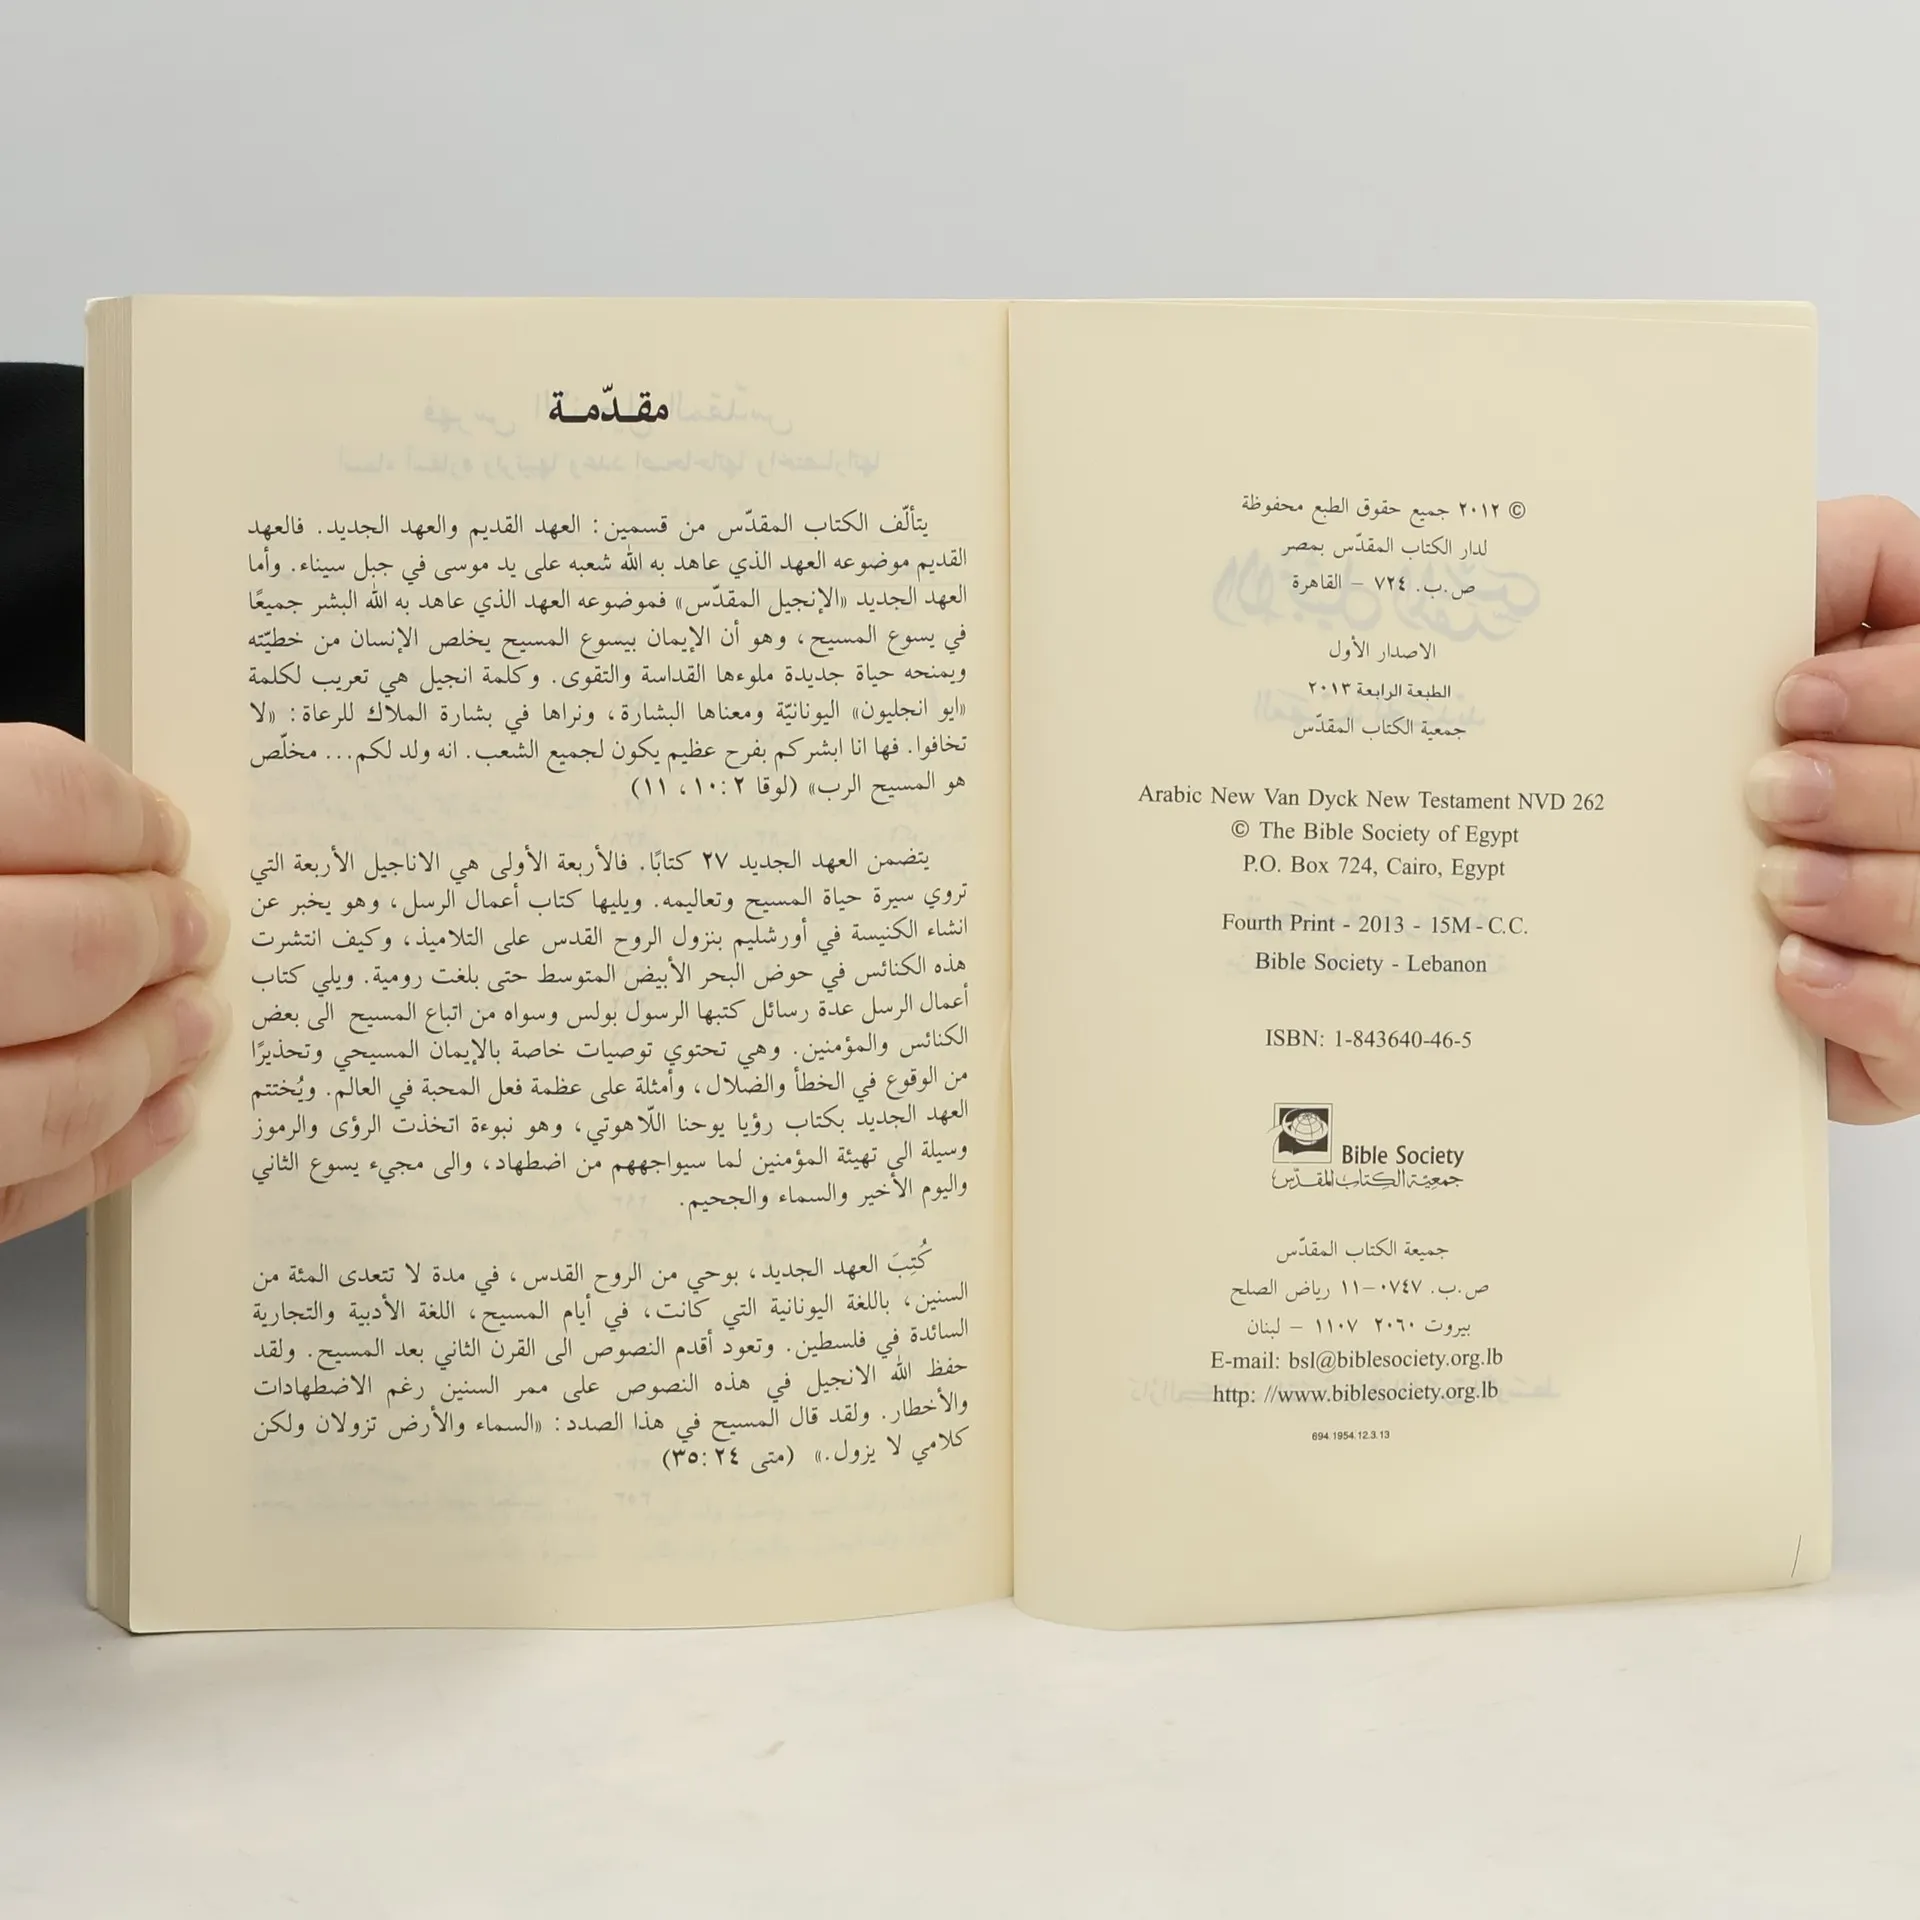 © ٢٠١٢ جميع حقوق الطبع محفوظة
لدار الكتاب المقدّس بمصر
ص.ب. ٧٢٤ – القاهرة
الاصدار الأول
الطبعة الرابعة ٢٠١٣
جمعية الكتاب المقدّس
Arabic New Van Dyck New Testament NVD 262
© The Bible Society of Egypt
P.O. Box 724, Cairo, Egypt
Fourth Print - 2013 - 15M - C.C.
Bible Society - Lebanon
ISBN: 1-843640-46-5
Bible Society
جمعيّة الكتاب المقدّس
جميعة الكتاب المقدّس
ص.ب. ٠٧٤٧–١١ رياض الصلح
بيروت ٢٠٦٠ ١١٠٧ – لبنان
E-mail: bsl@biblesociety.org.lb
http: //www.biblesociety.org.lb
694.1954.12.3.13
مقدّمة
يتألّف الكتاب المقدّس من قسمين: العهد القديم والعهد الجديد. فالعهد
القديم موضوعه العهد الذي عاهد به الله شعبه على يد موسى في جبل سيناء. وأما
العهد الجديد «الإنجيل المقدّس» فموضوعه العهد الذي عاهد به الله البشر جميعًا
في يسوع المسيح، وهو أن الإيمان بيسوع المسيح يخلص الإنسان من خطيّته
ويمنحه حياة جديدة ملوءها القداسة والتقوى. وكلمة انجيل هي تعريب لكلمة
«ايو انجليون» اليونانيّة ومعناها البشارة، ونراها في بشارة الملاك للرعاة: «لا
تخافوا. فها انا ابشركم بفرح عظيم يكون لجميع الشعب. انه ولد لكم... مخلّص
هو المسيح الرب» (لوقا ٢: ١٠، ١١)
يتضمن العهد الجديد ٢٧ كتابًا. فالأربعة الأولى هي الاناجيل الأربعة التي
تروي سيرة حياة المسيح وتعاليمه. ويليها كتاب أعمال الرسل، وهو يخبر عن
انشاء الكنيسة في أورشليم بنزول الروح القدس على التلاميذ، وكيف انتشرت
هذه الكنائس في حوض البحر الأبيض المتوسط حتى بلغت رومية. ويلي كتاب
أعمال الرسل عدة رسائل كتبها الرسول بولس وسواه من اتباع المسيح الى بعض
الكنائس والمؤمنين. وهي تحتوي توصيات خاصة بالإيمان المسيحي وتحذيرًا
من الوقوع في الخطأ والضلال، وأمثلة على عظمة فعل المحبة في العالم. ويُختتم
العهد الجديد بكتاب رؤيا يوحنا اللّاهوتي، وهو نبوءة اتخذت الرؤى والرموز
وسيلة الى تهيئة المؤمنين لما سيواجههم من اضطهاد، والى مجيء يسوع الثاني
واليوم الأخير والسماء والجحيم.
كُتِبَ العهد الجديد، بوحي من الروح القدس، في مدة لا تتعدى المئة من
السنين، باللغة اليونانية التي كانت، في أيام المسيح، اللغة الأدبية والتجارية
السائدة في فلسطين. وتعود أقدم النصوص الى القرن الثاني بعد المسيح. ولقد
حفظ الله الانجيل في هذه النصوص على ممر السنين رغم الاضطهادات
والأخطار. ولقد قال المسيح في هذا الصدد: «السماء والأرض تزولان ولكن
كلامي لا يزول.» (متى ٢٤: ٣٥)